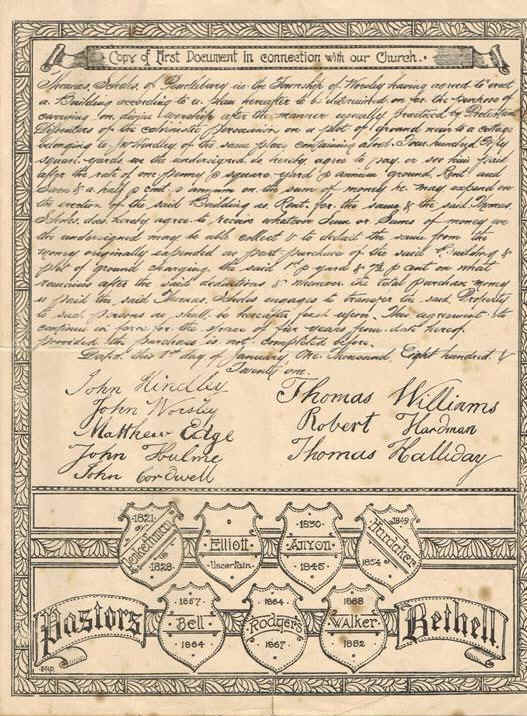 Copy of First Document In connection with our Church.
Thomas Scholes, of Pendlebury in the Township of Worsley having agreed to erect
a Building according to a plan hereafter to be determined on for the purpose of
carrying on divine worship after the manner usually practised by Protestant
Dissenters of the calvinistic persuasion on a plot of ground near to a cottage
belonging to Hindley of the same place containing about Four hundred fifty
square yards we the undersigned do hereby agree to pay or see him paid
after the rate of one penny p square yard p annum ground Rent and
Seven & a half p cent p annum on the sum of money he may expend on
the erection of the said Building as Rent for the same & the said Thomas
Scholes does hereby agree to receive whatever Sum or Sums of money we
the undersigned may be able collect & to deduct the same from the
money originally expended as part purchase of the said Building &
plot of ground charging the said 1d p yard & 7½ p cent on what
remains after the said deductions & whenever the total purchase money
is paid the said Thomas Scholes engages to transfer the said Property
to such persons as shall be hereafter fixed upon. This agreement to
continue in force for the space of five years from date hereof
provided the purchase is not completed before.
Dated this 1st day of January, One Thousand, Eight hundred &
Twenty one.
John Hindley
John Worsley
Matthew Edge
John Hulme
John Cordwell
Thomas Williams
Robert Hardman
Thomas Halliday
1821
or
1828
Elliott
Uncertain
1830
Anyon
1845
1849
Hardaker
1854
Pastors
1857
Bell
1864
1864
Rodgers
1867
1868
Walker
1882
Bethell.